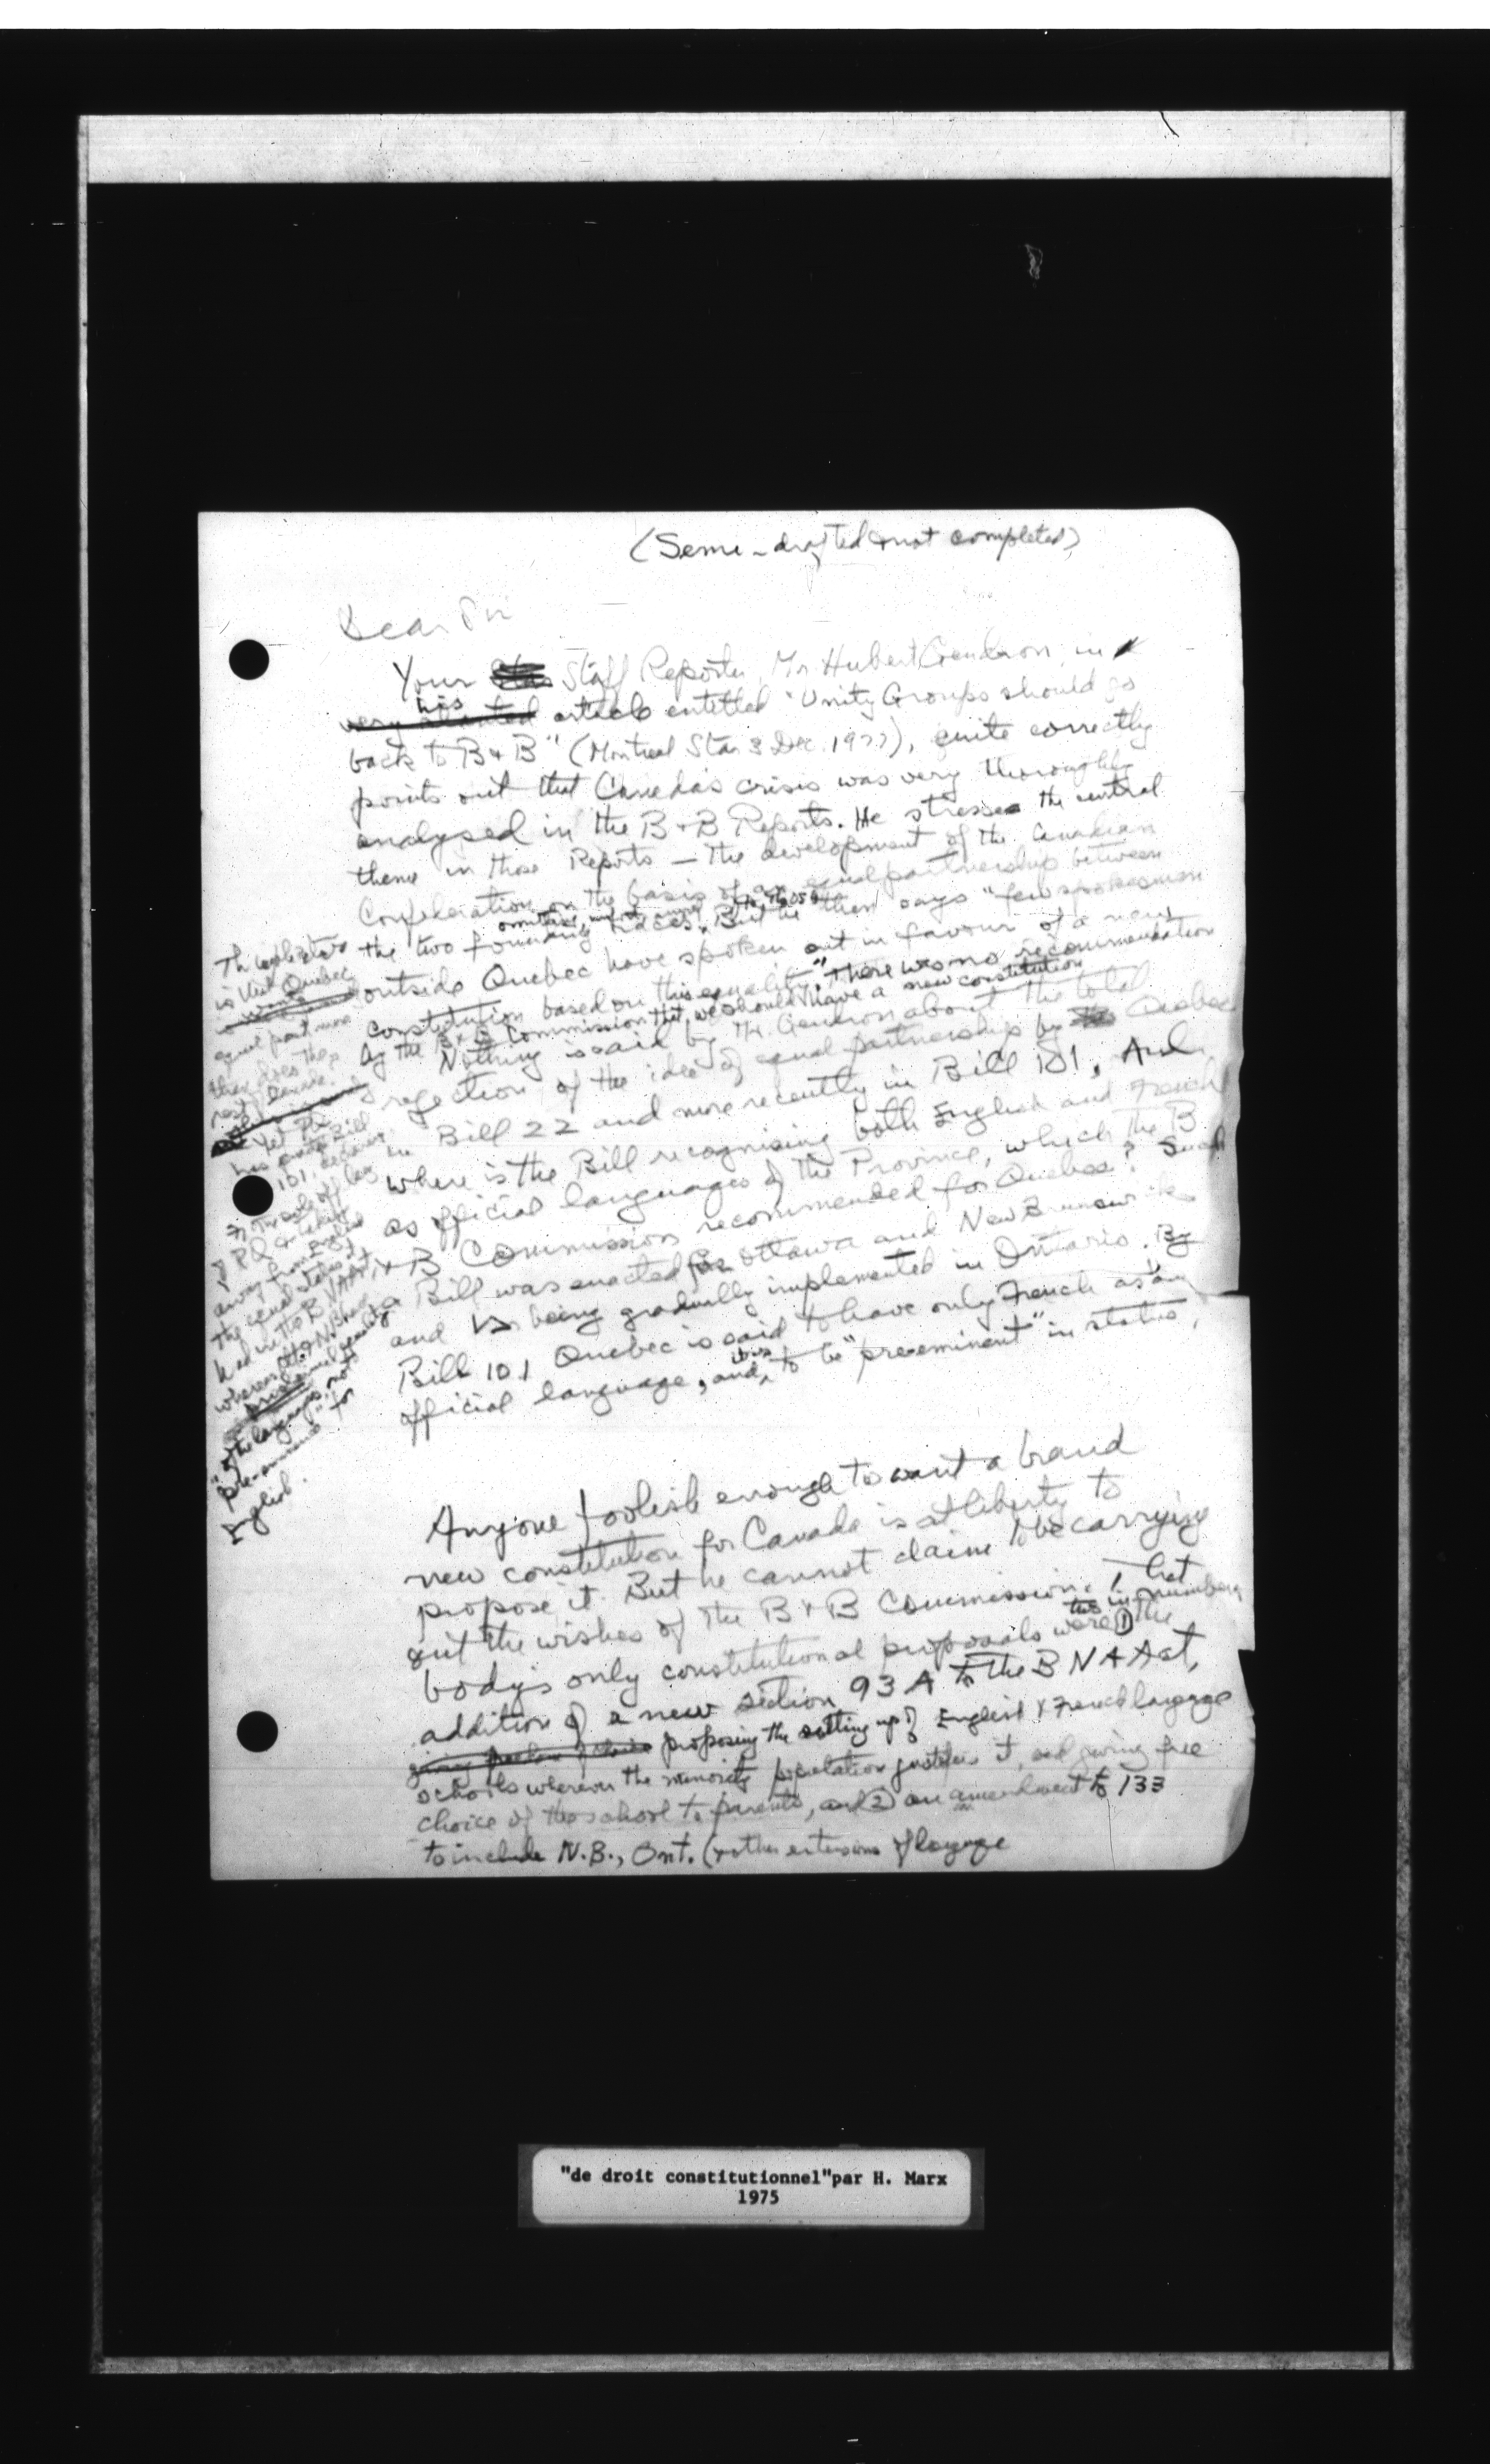 (Semi-drafted & not completed)
Dear Sir
Your Staff Reporter, Mr Hubert Gendron, in
his
very slanted article entitled "Unity Groups should go
back to B & B" (Montreal Star 3 Dec. 1977), quite correctly
points out that Canada's crisis was very thoroughly
analysed in the B & B Reports. He stresses the central
theme in those Reports — the development of the Canadian
Confederation on the basis of an equal partnership between
the two founding races. But he then says "few spokesmen
outside Quebec have spoken out in favour of a new
constitution based on this equality." There was no recommendation
by the B & B Commission that we should have a new constitution
Nothing is said by Mr Gendron about the total
rejection of the idea of equal partnership by Quebec
in Bill 22 and more recently in Bill 101. And
where is the Bill recognising both English and French
as official languages of the Province, which the B
& B Commission recommended for Quebec? Such
a Bill was enacted for Ottawa and New Brunswick
and is being gradually implemented in Ontario. By
Bill 101 Quebec is said to have only French as an
official language, and to be "pre-eminent" in status,
Anyone foolish enough to want a brand
new constitution for Canada is at liberty to
propose it. But he cannot claim to be carrying
out the wishes of the B & B Commission. That
two in number
body's only constitutional proposals were ① the
addition of a new section 93 A to the B N A Act,
proposing the setting up of English & French language
schools wherever the minority population justifies it, and giving free
choice of the school to parents, and ② an amendment to 133
to include N.B., Ont. (& other extensions of language
is that Quebec
equal partner
than does the
rest
Yet
Bill
101,
away from English
the equal status it
had in the B N A Act,
whereas
equality
of the languages, not
"pre-eminence" for
English.
"de droit constitutionnel"par H. Marx
1975